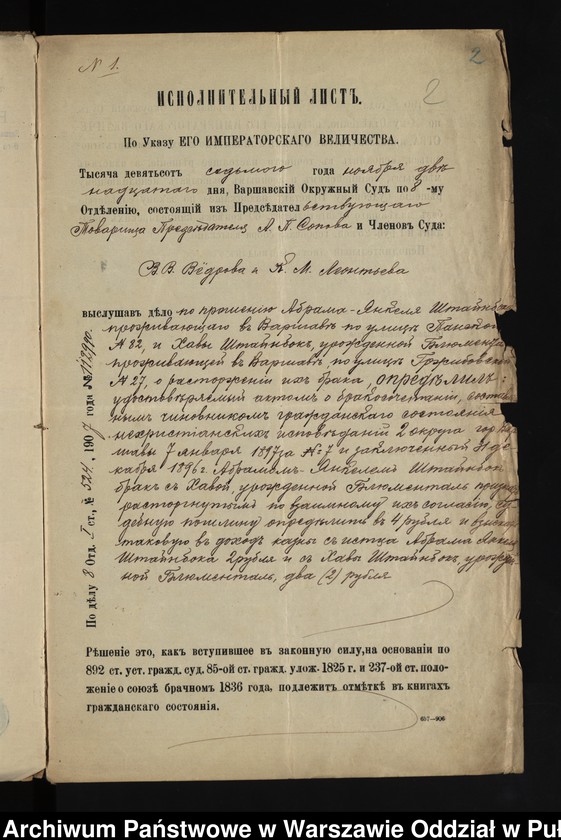 № 1.
2
2
ИСПОЛНИТЕЛЬНЫЙ ЛИСТЪ.
По Указу ЕГО ИМПЕРАТОРСКАГО ВЕЛИЧЕСТВА.
Тысяча девятьсотъ седьмого года ноября две
надцатаго дня, Варшавскій Окружный Судъ по 8-му
Отдѣленію, состоящій изъ Предсѣдательствующаго
Товарища Предсѣдателя А. П. Сопова и Членовъ Суда:
В. В. Вёдрова и К. М. Леонтьева
выслушавъ дѣло по прошенію Абрама-Янкеля Штайнбо
проживающаго въ Варшавѣ по улицѣ Панской
№ 82, и Хавы Штайнбокъ, урожденной Блюменталь
проживающей въ Варшавѣ, по улицѣ Гржибовской
№ 27, о расторженіи ихъ брака, опредѣлилъ:
удостовѣряемый актомъ о бракосочетаніи, состав
нымъ чиновникомъ гражданскаго состоянія
нехристіанскихъ исповѣданій 2 округа гор. Вар
шавы 7 января 1897 за № 7 и заключенный 31 де
кабря 1896 г. Абрамомъ-Янкелемъ Штайнбок
бракъ съ Хавой, урожденной Блюменталь призн
расторгнутымъ по взаимному ихъ согласію, Су
дебную пошлину опредѣлить въ 4 рубля и взыска
таковую въ доходъ казны съ истца Абрама Янкел
Штайнбока 2 рубля и съ Хавы Штайнбокъ, урожден
ной Блюменталь, два (2) рубля
По дѣлу 8 Отд. I ст., № 524. 1907 года №
Рѣшеніе это, какъ вступившее въ законную силу, на основаніи по
892 ст. уст. гражд. суд. 85-ой ст. гражд. улож. 1825 г. и 237-ой ст. поло-
женіе о союзѣ брачномъ 1836 года, подлежитъ отмѣткѣ въ книгахъ
гражданскаго состоянія.
657—906
Archiwum Państwowe w Warszawie Oddział w Puł